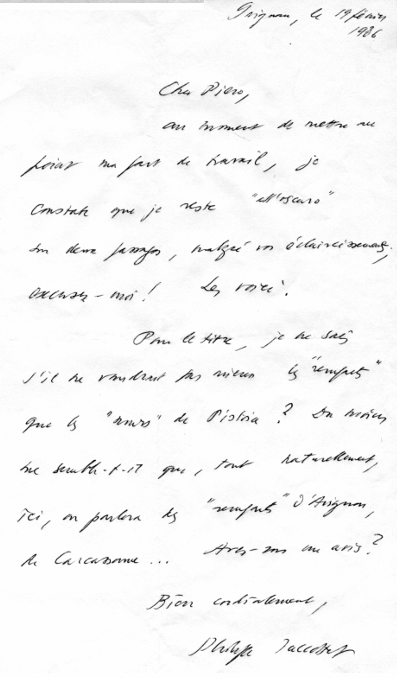 Grignan, le 19 février
1986
Cher Piero,
au moment de mettre au
point ma part de travail, je
constate que je reste "all'oscuro"
sur deux passages, malgré vos éclaircissements,
excusez-moi! Les voici.
Pour le titre, je ne sais
s'il ne vaudrait pas mieux les "remparts"
que les "murs" de Pistoia? Du moins
me semble-t-il que, tout naturellement,
ici, on parlera des "remparts" d'Avignon,
de Carcassonne... Avez-vous un avis?
Bien cordialement,
Philippe Jaccottet